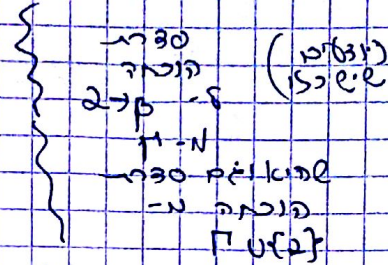 סדרת
הוכחה
ל- α→β
מ- Γ
שהיא וגם סדרת
הוכחה מ-
Γ∪{α}
(יודעים
שיש כזו)